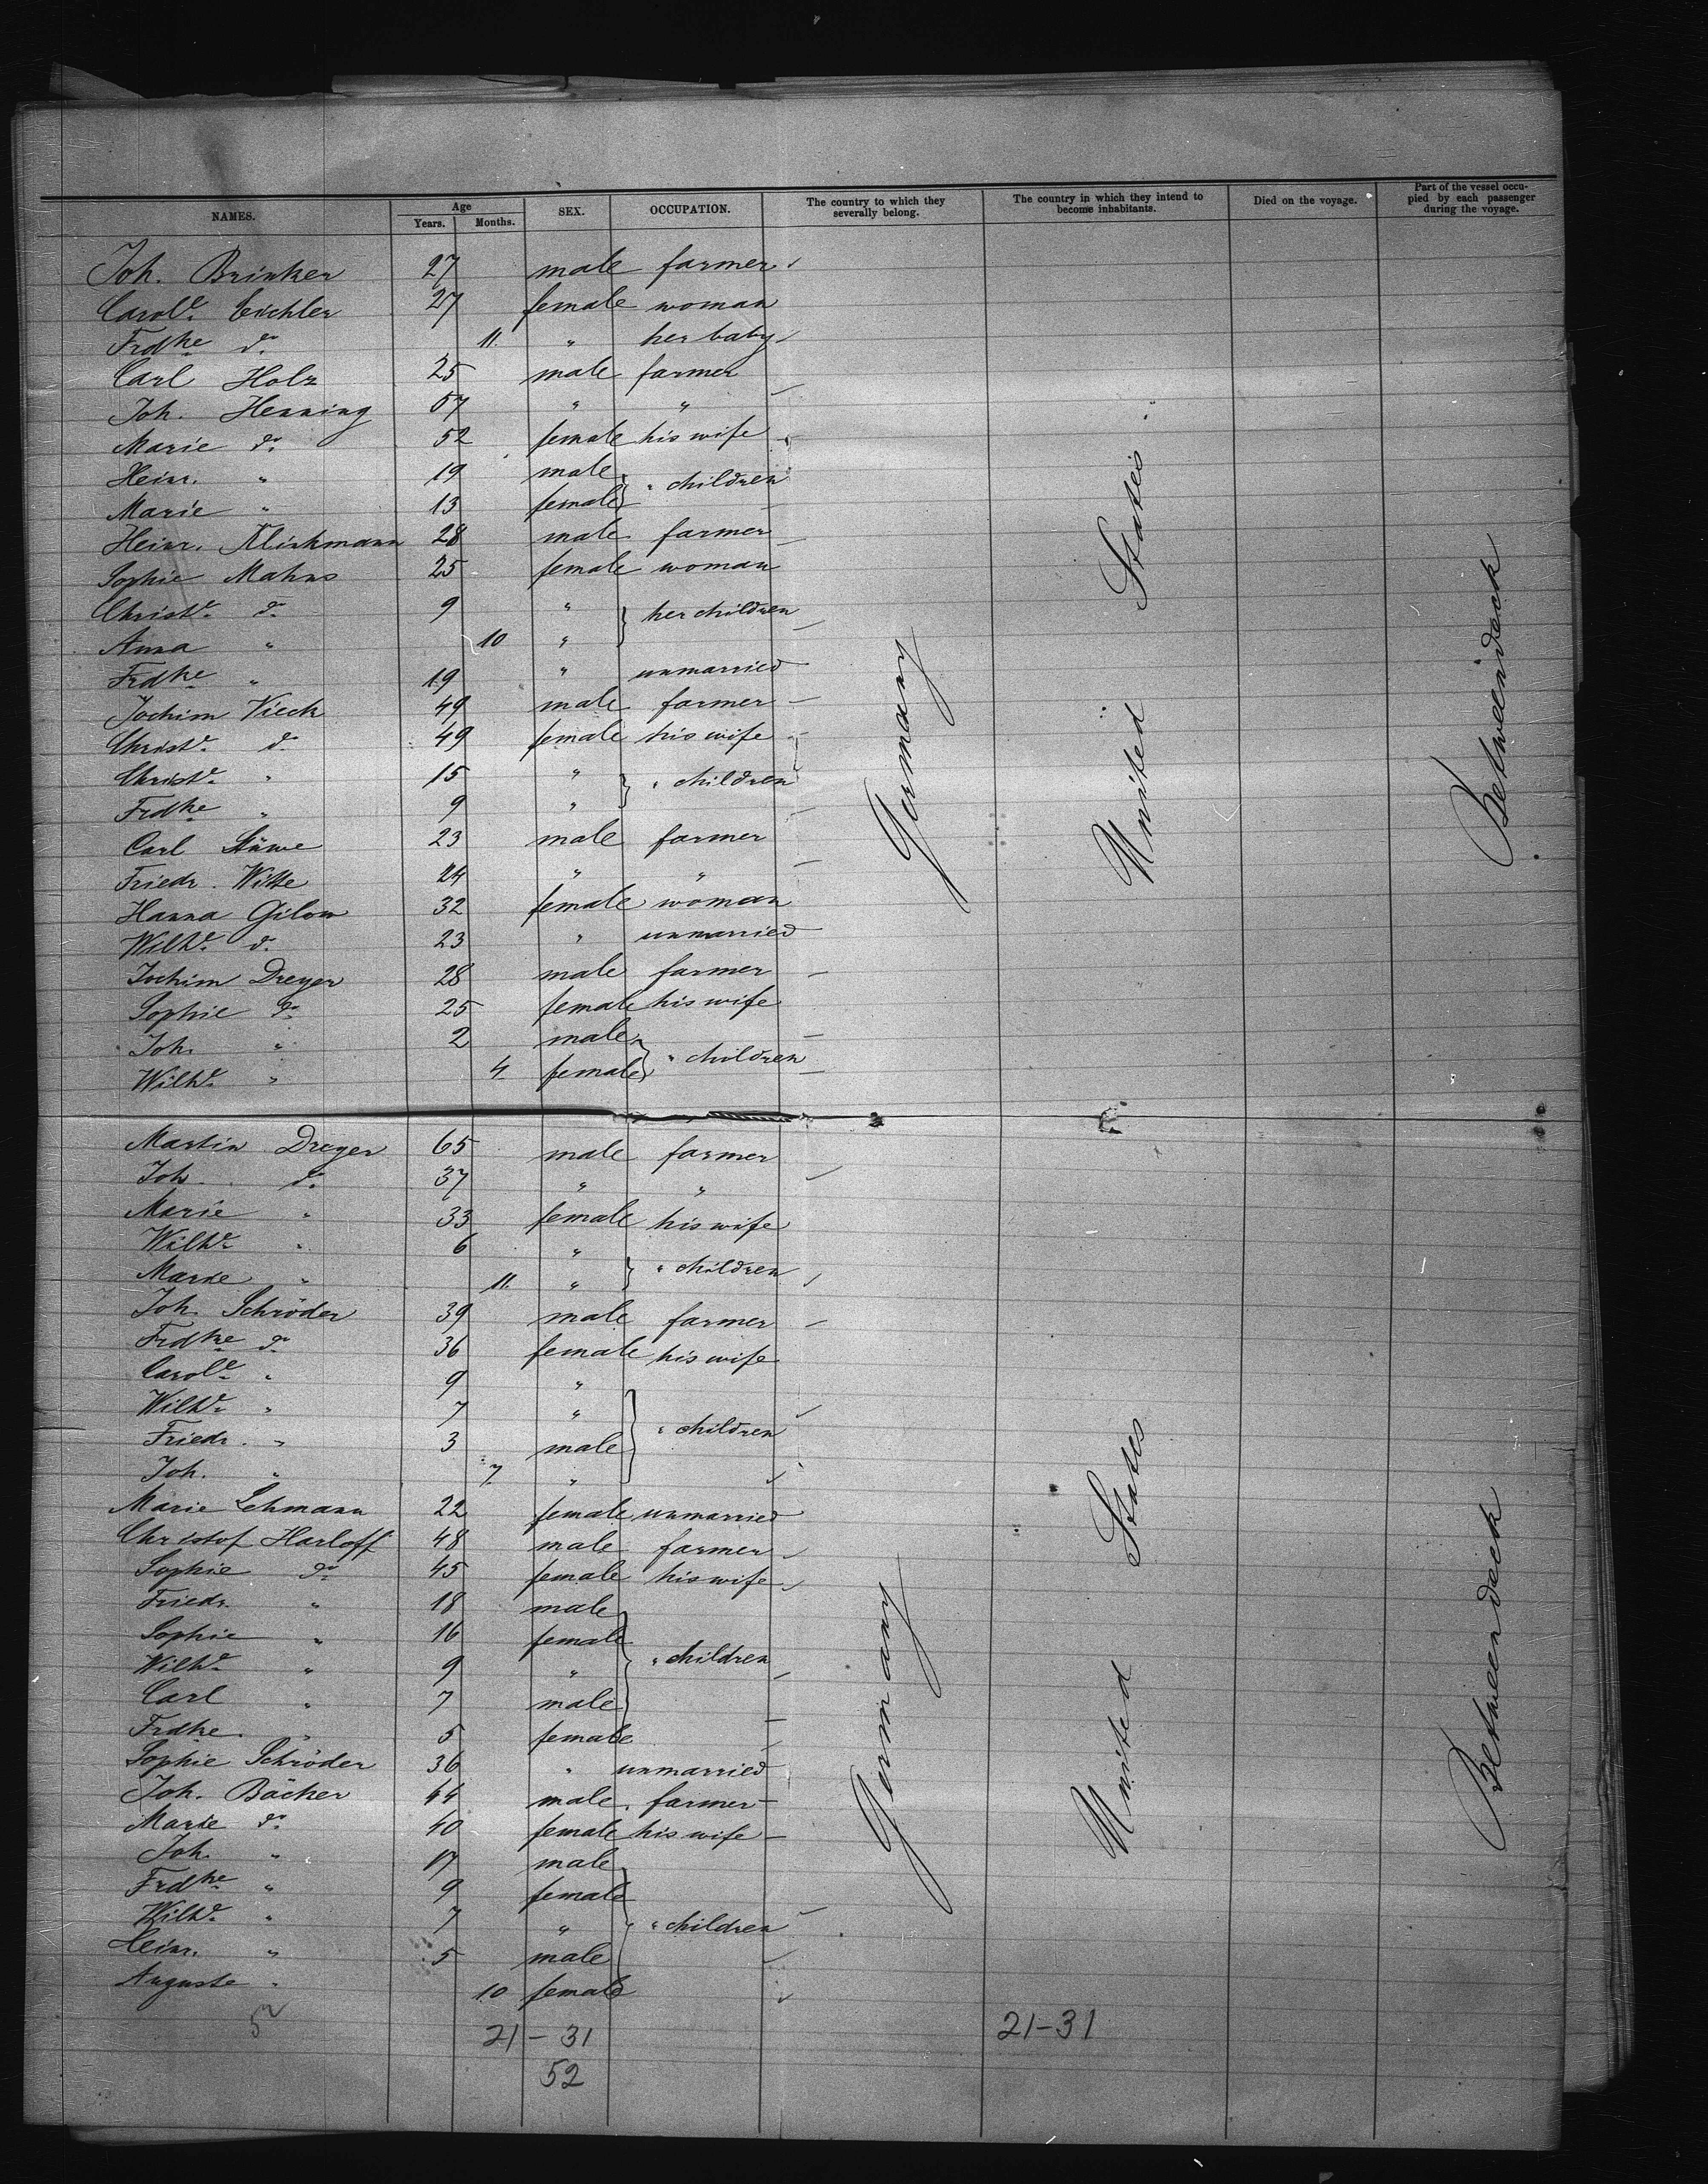 NAMES. Age Years. Months. SEX. OCCUPATION. The country to which they severally belong. The country in which they intend to become inhabitants. Died on the voyage. Part of the vessel occupied by each passenger during the voyage.
Joh. Brinker 27 male farmer
Carole. Eichler 27 female woman
Frdke do. 11. " her baby
Carl Holz 25 male farmer
Joh. Henning 57 " "
Marie do. 52 female his wife
Heinr. " 19 male " children
Marie " 13 female
Heinr. Klinkmann 28 male farmer
Sophie Mahns 25 female woman
Christe. do. 9 " her children
Anna " 10 "
Frdke " 19 " unmarried
Jochim Vieck 49 male farmer
Christe. do. 49 female his wife
Christe. " 15 " " children
Frdke " 9 "
Carl Stüwe 23 male farmer
Friedr. Witte 24 " "
Hanna Gilow 32 female woman
Wilhe. do. 23 " unmarried
Jochim Dreyer 28 male farmer
Sophie do. 25 female his wife
Joh. " 2 male " children
Wilhe. " 4 female
Germany United States Betweendeck
Martin Dreyer 65 male farmer
Joh. do. 37 " "
Marie " 33 female his wife
Wilhe. " 6 " " children
Marie " 11. "
Joh. Schröder 39 male farmer
Frdke do. 36 female his wife
Carole. " 9 "
Wilhe. " 7 " " children
Friedr. " 3 male
Joh. " 7. "
Marie Lehmann 22 female unmarried
Christof Harloff 48 male farmer
Sophie do. 45 female his wife
Friedr. " 18 male
Sophie " 16 female
Wilhe. " 9 " " children
Carl " 7 male
Frdke. " 5 female
Sophie Schröder 36 " unmarried
Joh. Bäcker 44 male farmer
Marie do. 40 female his wife
Joh. " 17 male
Frdke " 9 female
Wilhe. " 7 " " children
Heinr. " 5 male
Auguste " 10 female
Germany United States Betweendeck
52 21-31 21-31
52